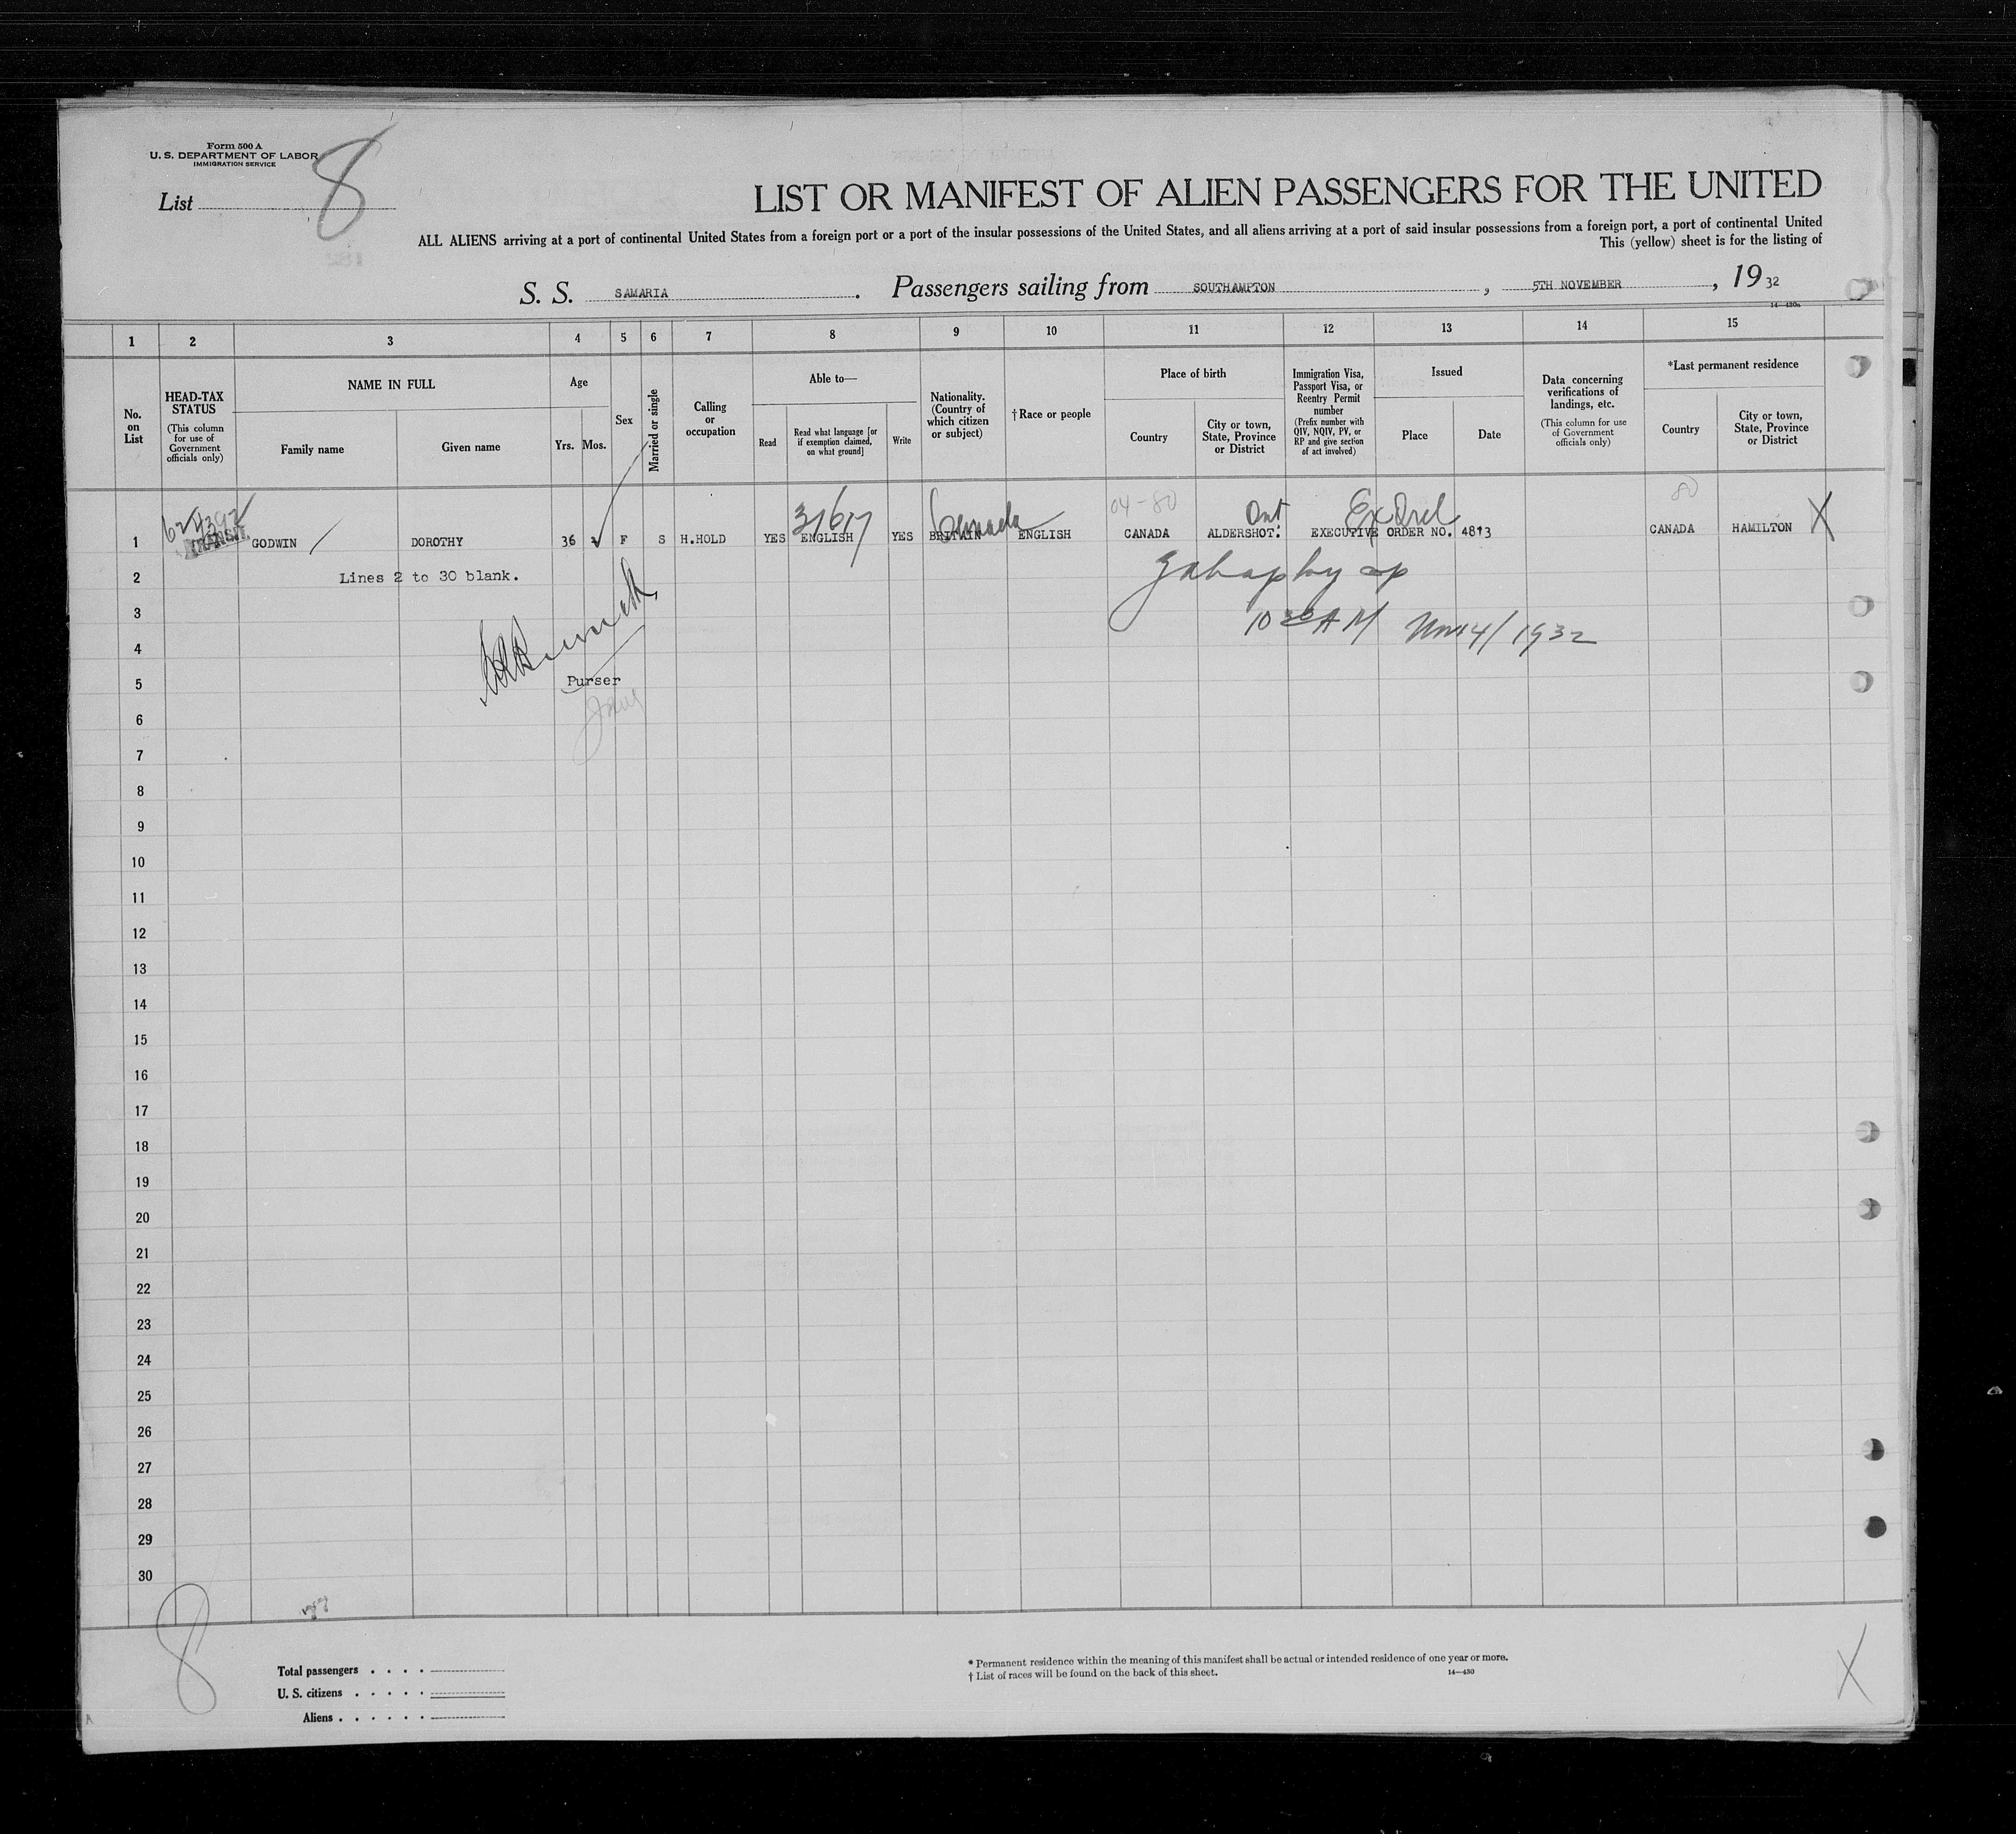 Form 500 A
U. S. DEPARTMENT OF LABOR
IMMIGRATION SERVICE
List 8
LIST OR MANIFEST OF ALIEN PASSENGERS FOR THE UNITED
ALL ALIENS arriving at a port of continental United States from a foreign port or a port of the insular possessions of the United States, and all aliens arriving at a port of said insular possessions from a foreign port, a port of continental United
This (yellow) sheet is for the listing of
S. S. SAMARIA . Passengers sailing from SOUTHAMPTON , 5TH NOVEMBER , 19 32
1 2 3 4 5 6 7 8 9 10 11 12 13 14 15
No. on List
HEAD-TAX STATUS
(This column for use of Government officials only)
NAME IN FULL
Family name
Given name
Age
Yrs. Mos.
Sex
Married or single
Calling or occupation
Able to—
Read
Read what language [or if exemption claimed, on what ground]
Write
Nationality. (Country of which citizen or subject)
† Race or people
Place of birth
Country
City or town, State, Province or District
Immigration Visa, Passport Visa, or Reentry Permit number
(Prefix number with QIV, NQIV, PV, or RP and give section of act involved)
Issued
Place
Date
Data concerning verifications of landings, etc.
(This column for use of Government officials only)
*Last permanent residence
Country
City or town, State, Province or District
04-80 Ont 80
31617 Canada
TRANSIT
1 GODWIN DOROTHY 36 F S H.HOLD YES ENGLISH YES BRITAIN ENGLISH CANADA ALDERSHOT. EXECUTIVE ORDER NO. 4813 CANADA HAMILTON X
2 Lines 2 to 30 blank.
3 10 30 A M Nov 14/1932
4
5 Purser
6
7
8
9
10
11
12
13
14
15
16
17
18
19
20
21
22
23
24
25
26
27
28
29
30
8
Total passengers . . . .
U. S. citizens . . . . .
Aliens . . . . . .
* Permanent residence within the meaning of this manifest shall be actual or intended residence of one year or more.
† List of races will be found on the back of this sheet.
14—430
X